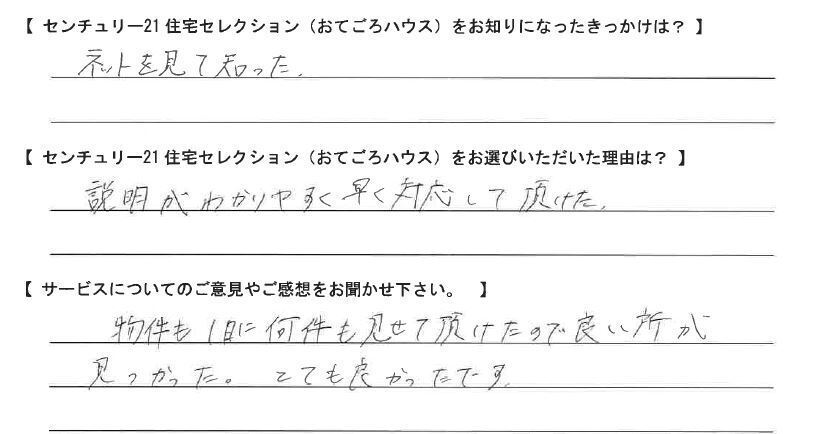 【 センチュリー21 住宅セレクション（おてごろハウス）をお知りになったきっかけは？ 】
ネットを見て知った。
【 センチュリー21 住宅セレクション（おてごろハウス）をお選びいただいた理由は？ 】
説明がわかりやすく早く対応して頂けた。
【 サービスについてのご意見やご感想をお聞かせ下さい。 】
物件も1日に何件も見せて頂けたので良い所が
見つかった。とても良かったです。